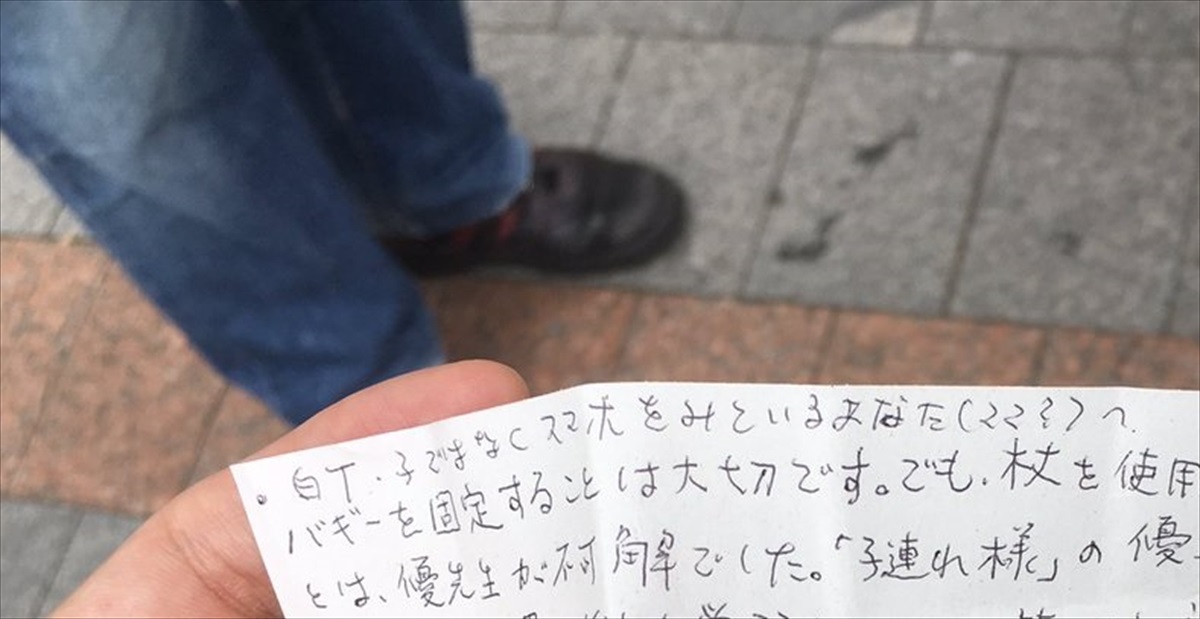 。白T・子ではなくスマホをみているあなた(ママ?)へ
バギーを固定することは大切です。でも、杖を使用
とは、優先生が不可解でした。「子連れ様」の優